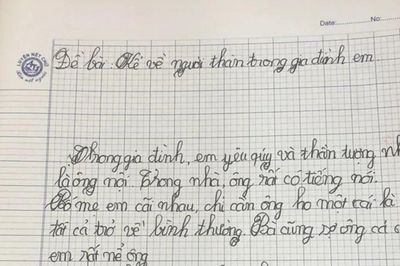 Date: No:
LUYỆN NÉT CHỮ
Đề bài: Kể về người thân trong gia đình em.
Trong gia đình, em yêu quý và thần tượng nh
là ông nội. Trong nhà, ông rất có tiếng nói.
Bố mẹ em cãi nhau, chỉ cần ông ho một cái là
tất cả trở về bình thường. Bà cũng sợ ông cả
em rất nể ông